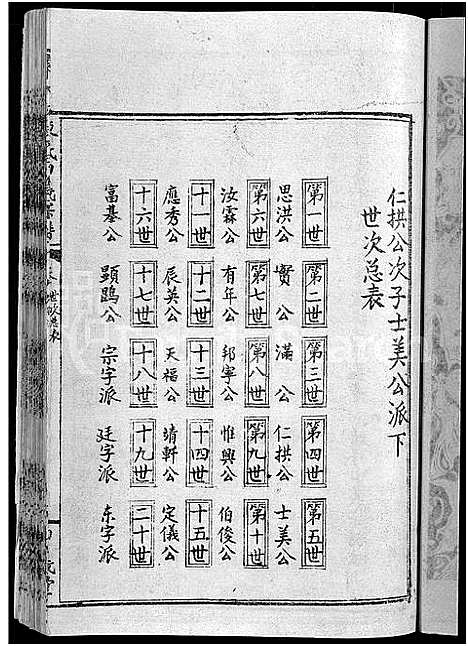 仁拱公次子士美公派下
世次总表
第一世 第二世 第三世 第四世 第五世
思洪公 實公 滿公 仁拱公 士美公
第六世 第七世 第八世 第九世 第十世
汝霖公 有年公 邦寧公 惟興公 伯俊公
十一世 十二世 十三世 十四世 十五世
應秀公 辰英公 天福公 靖軒公 定儀公
十六世 十七世 十八世 十九世 二十世
富基公 顕鵾公 宗字派 廷字派 东字派